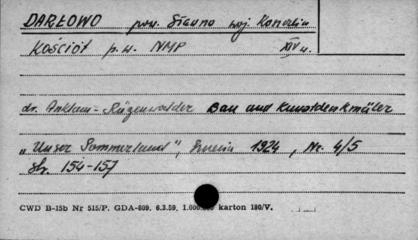 DARŁOWO pow. Sławno woj. Koszalin
Kościół p.w. NMP XIV w.
dr. Anklam - Rügenwalder Bau und Kunstdenkmäler
„Unser Pommerland", 1924, Nr. 4/5
str. 154-157
CWD B-15b Nr 515/P. GDA-809, 6.3.59, 1.000.000 karton 180/V.